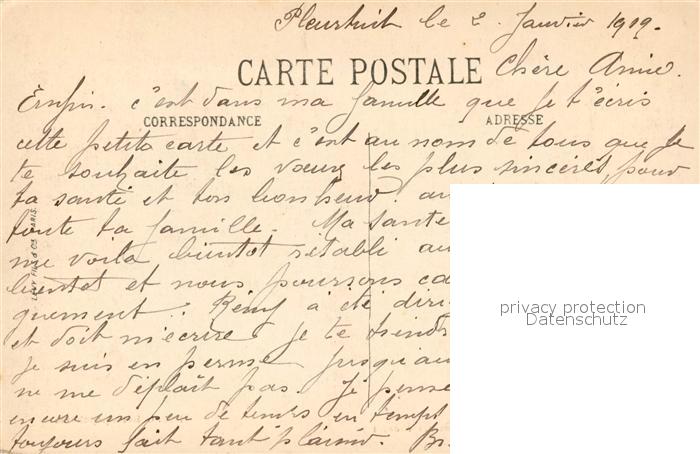 Pleurtuit le 2 Janvier 1919.
CARTE POSTALE Chère Amie.
Enfin. c'est dans ma famille que je t'écris
CORRESPONDANCE ADRESSE
cette petite carte et c'est au nom de tous que je
te souhaite les vœux les plus sincères, pour
ta santé et ton bonheur. au
toute ta famille. Ma sante
me voila bientot rétabli au
bientot et nous pourrons ca
quement. Rémy a été diri
et doit m'écrire. je te
je suis en perme jusqu'au
ne me déplaît pas. Je pense
encore un peu de temps en temps
toujours fait tant plaisir. Br
LEVY FILS & Cie PARIS.
privacy protection
Datenschutz